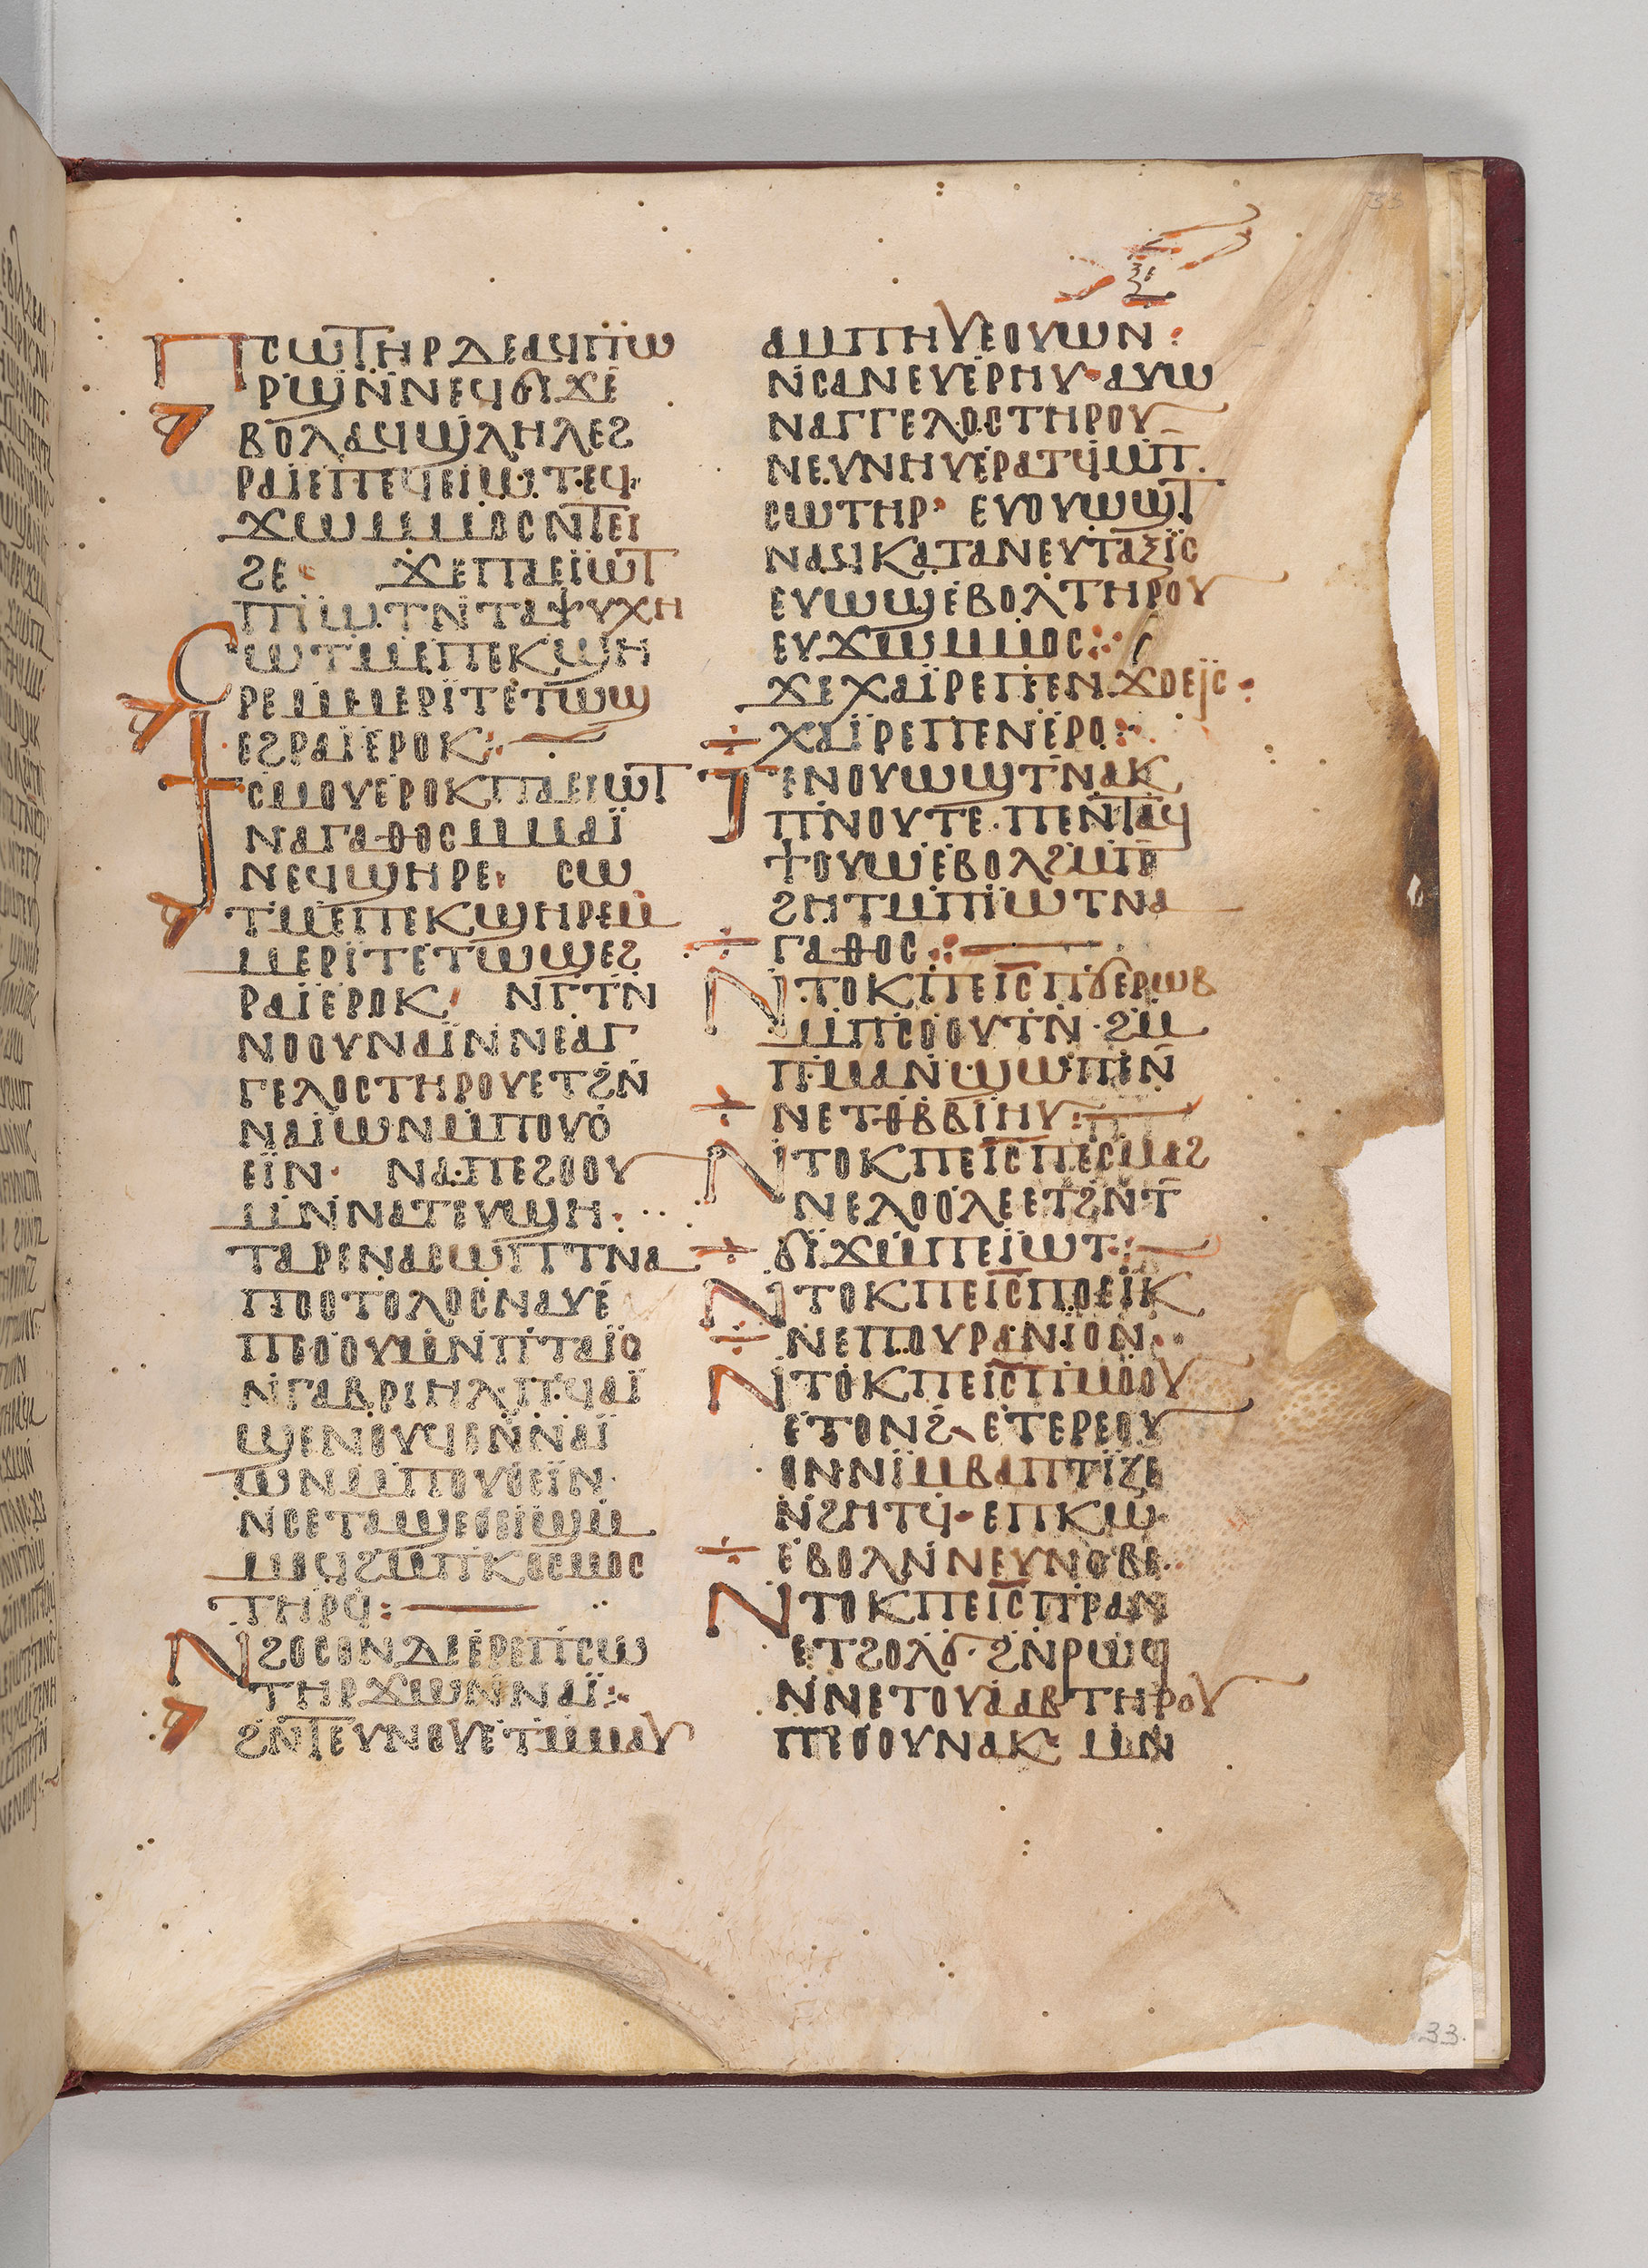 ⲝⲉ
ⲡⲥⲱⲧⲏⲣ ⲇⲉ ⲁϥⲡⲱ
ⲣϣ ⲛⲛⲉϥϭⲓϫ ⲉ
ⲃⲟⲗ ⲁϥϣⲗⲏⲗ ⲉϩ
ⲣⲁⲓ ⲉⲡⲉϥⲉⲓⲱⲧ ⲉϥ
ϫⲱ ⲙⲙⲟⲥ ⲛⲧⲉⲓ
ϩⲉ ϫⲉ ⲡⲁⲉⲓⲱⲧ
ⲡⲓⲱⲧ ⲛⲧⲁⲯⲩⲭⲏ
ⲥⲱⲧⲙ ⲉⲡⲉⲕϣⲏ
ⲣⲉ ⲙⲙⲉⲣⲓⲧ ⲉⲧⲱϣ
ⲉϩⲣⲁⲓ ⲉⲣⲟⲕ
ϯⲥⲙⲟⲩ ⲉⲣⲟⲕ ⲡⲁⲉⲓⲱⲧ
ⲛⲁⲅⲁⲑⲟⲥ ⲙⲙⲁⲓ
ⲛⲉϥϣⲏⲣⲉ ⲥⲱ
ⲧⲙ ⲉⲡⲉⲕϣⲏⲣⲉ ⲙ
ⲙⲉⲣⲓⲧ ⲉⲧⲱϣ ⲉϩ
ⲣⲁⲓ ⲉⲣⲟⲕ ⲛⲅⲧⲛ
ⲛⲟⲟⲩ ⲛⲁⲓ ⲛⲛⲉⲁⲅ
ⲅⲉⲗⲟⲥ ⲧⲏⲣⲟⲩ ⲉⲧϩⲛ
ⲛⲁⲓⲱⲛ ⲙⲡⲟⲩⲟ
ⲉⲓⲛ ⲛⲁⲡⲉϩⲟⲟⲩ
ⲙⲛ ⲛⲁⲧⲉⲩϣⲏ
ⲧⲁⲣⲉ ⲛⲁⲥⲱⲡⲧ ⲛⲁ
ⲡⲟⲥⲧⲟⲗⲟⲥ ⲛⲁⲩ ⲉ
ⲡⲉⲟⲟⲩ ⲙⲛ ⲡⲧⲁⲓⲟ
ⲛⲅⲁⲃⲣⲓⲏⲗ ⲡϥⲁⲓ
ϣⲉⲛⲟⲩϥⲉ ⲛⲛⲁⲓ
ⲱⲛ ⲙⲡⲟⲩⲟⲉⲓⲛ
ⲛⲥⲉⲧⲁϣⲉⲟⲉⲓϣ ⲙ
ⲙⲟϥ ϩⲙ ⲡⲕⲟⲥⲙⲟⲥ
ⲧⲏⲣϥ
ⲛϩⲟⲥⲟⲛ ⲇⲉ ⲉⲣⲉ ⲡⲥⲱ
ⲧⲏⲣ ϫⲱ ⲛⲛⲁⲓ
ϩⲛ ⲧⲉⲩⲛⲟⲩ ⲉⲧⲙⲙⲁⲩ
ⲁⲙⲡⲏⲩⲉ ⲟⲩⲱⲛ
ⲛⲥⲁ ⲛⲉⲩⲉⲣⲏⲩ ⲁⲩⲱ
ⲛⲁⲅⲅⲉⲗⲟⲥ ⲧⲏⲣⲟⲩ
ⲛⲉⲩⲛⲏⲩ ⲉⲣⲁⲧϥ ⲙⲡ
ⲥⲱⲧⲏⲣ ⲉⲩⲟⲩⲱϣⲧ
ⲛⲁϥ ⲕⲁⲧⲁ ⲛⲉⲩⲧⲁⲝⲓⲥ
ⲉⲩⲱϣ ⲉⲃⲟⲗ ⲧⲏⲣⲟⲩ
ⲉⲩϫⲱ ⲙⲙⲟⲥ
ϫⲉ ⲭⲁⲓⲣⲉ ⲡⲉⲛϫⲟⲉⲓⲥ
ⲭⲁⲓⲣⲉ ⲡⲉⲛⲣⲣⲟ
ⲧⲉⲛⲟⲩⲱϣⲧ ⲛⲁⲕ
ⲡⲛⲟⲩⲧⲉ ⲡⲉⲛⲧⲁϥ
ϯⲟⲩⲱ ⲉⲃⲟⲗ ϩⲙ ⲡⲉ
ϩⲏⲧ ⲙⲡⲓⲱⲧ ⲛⲁ
ⲅⲁⲑⲟⲥ
ⲛⲧⲟⲕ ⲡⲉ ⲓⲥ ⲡϭⲉⲣⲱⲃ
ⲙⲡⲥⲟⲟⲩⲧⲛ ϩⲙ
ⲡⲙⲁⲛϣⲱⲡⲉ ⲛ
ⲛⲉⲧⲑⲃⲃⲓⲏⲩ
ⲛⲧⲟⲕ ⲡⲉ ⲓⲥ ⲡⲉⲥⲙⲁϩ
ⲛⲉⲗⲟⲟⲗⲉ ⲉⲧϩⲛ ⲧ
ϭⲓϫ ⲙⲡⲉⲓⲱⲧ
ⲛⲧⲟⲕ ⲡⲉ ⲓⲥ ⲡⲟⲉⲓⲕ
ⲛⲉⲡⲟⲩⲣⲁⲛⲓⲟⲛ
ⲛⲧⲟⲕ ⲡⲉ ⲓⲥ ⲡⲙⲟⲟⲩ
ⲉⲧⲟⲛϩ ⲉⲧⲉⲣⲉ ⲟⲩ
ⲟⲛ ⲛⲓⲙ ⲃⲁⲡⲧⲓⲍⲉ
ⲛϩⲏⲧϥ ⲉⲡⲕⲱ
ⲉⲃⲟⲗ ⲛⲛⲉⲩⲛⲟⲃⲉ
ⲛⲧⲟⲕ ⲡⲉ ⲓⲥ ⲡⲣⲁⲛ
ⲉⲧϩⲟⲗϭ ϩⲛ ⲣⲱϥ
ⲛⲛⲉⲧⲟⲩⲁⲁⲃ ⲧⲏⲣⲟⲩ
ⲡⲉⲟⲟⲩ ⲛⲁⲕ ⲙⲛ
33.